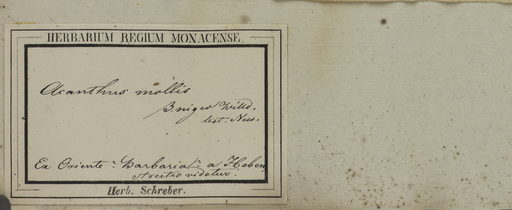 HERBARIUM REGIUM MONACENSE.
Acanthus mollis
β. niger Willd.
test. Nees.
Ex Oriente Barbaria a Heben
videtur.
Herb. Schreber.